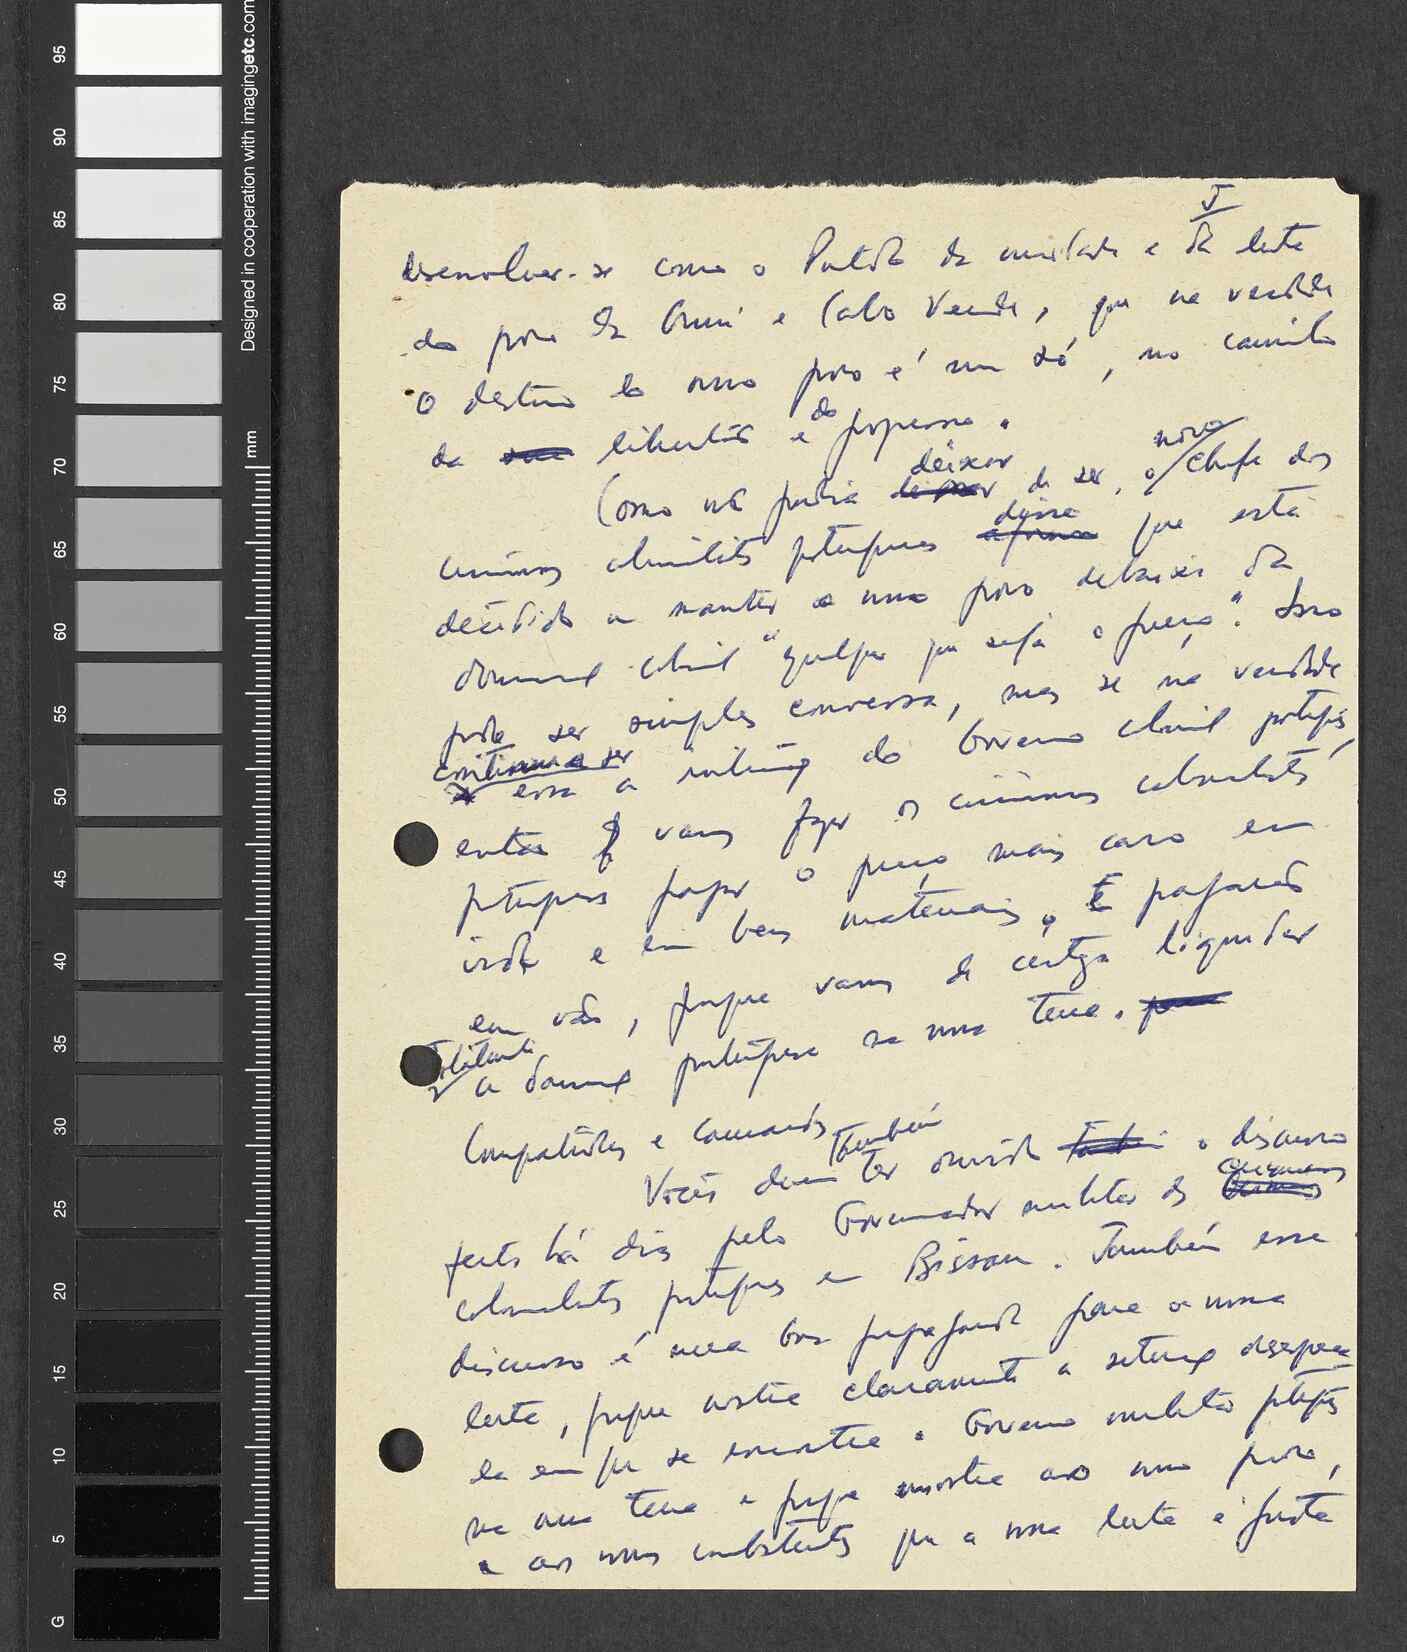 95
90
85
80
75
70
65
60
55
50
45
40
35
30
25
20
15
10
5
G
Designed in cooperation with imagingetc.com
mm
V
desenvolver-se como o Partido da unidade e da luta
do povo da Guiné e Cabo Verde, que na verdade
O destino do nosso povo é um só, no caminho
da liberdade e do progresso.
Como não podia deixar de ser, o novo chefe dos
criminosos colonialistas portugueses disse que está
decidido a manter o nosso povo debaixo da
dominação colonial "qualquer que seja o preço". Isso
pode ser simples conversa, mas se na verdade
continua a ser essa a intenção do Governo colonial português,
então vamos fazer os criminosos colonialistas
portugueses pagar o preço mais caro em
vidas e em bens materiais. E pagarão
em vão, porque vamos de certeza liquidar
totalmente a dominação portuguesa na nossa terra.
Compatriotas e camaradas
Vocês devem também ter ouvido o discurso
feito há dias pelo Governador militar dos criminosos
colonialistas portugueses em Bissau. Também esse
discurso é uma boa propaganda para a nossa
luta, porque mostra claramente a situação desespera
da em que se encontra o Governo militar português
na nossa terra e porque mostra ao nosso povo,
e aos nossos combatentes que a nossa luta é justa